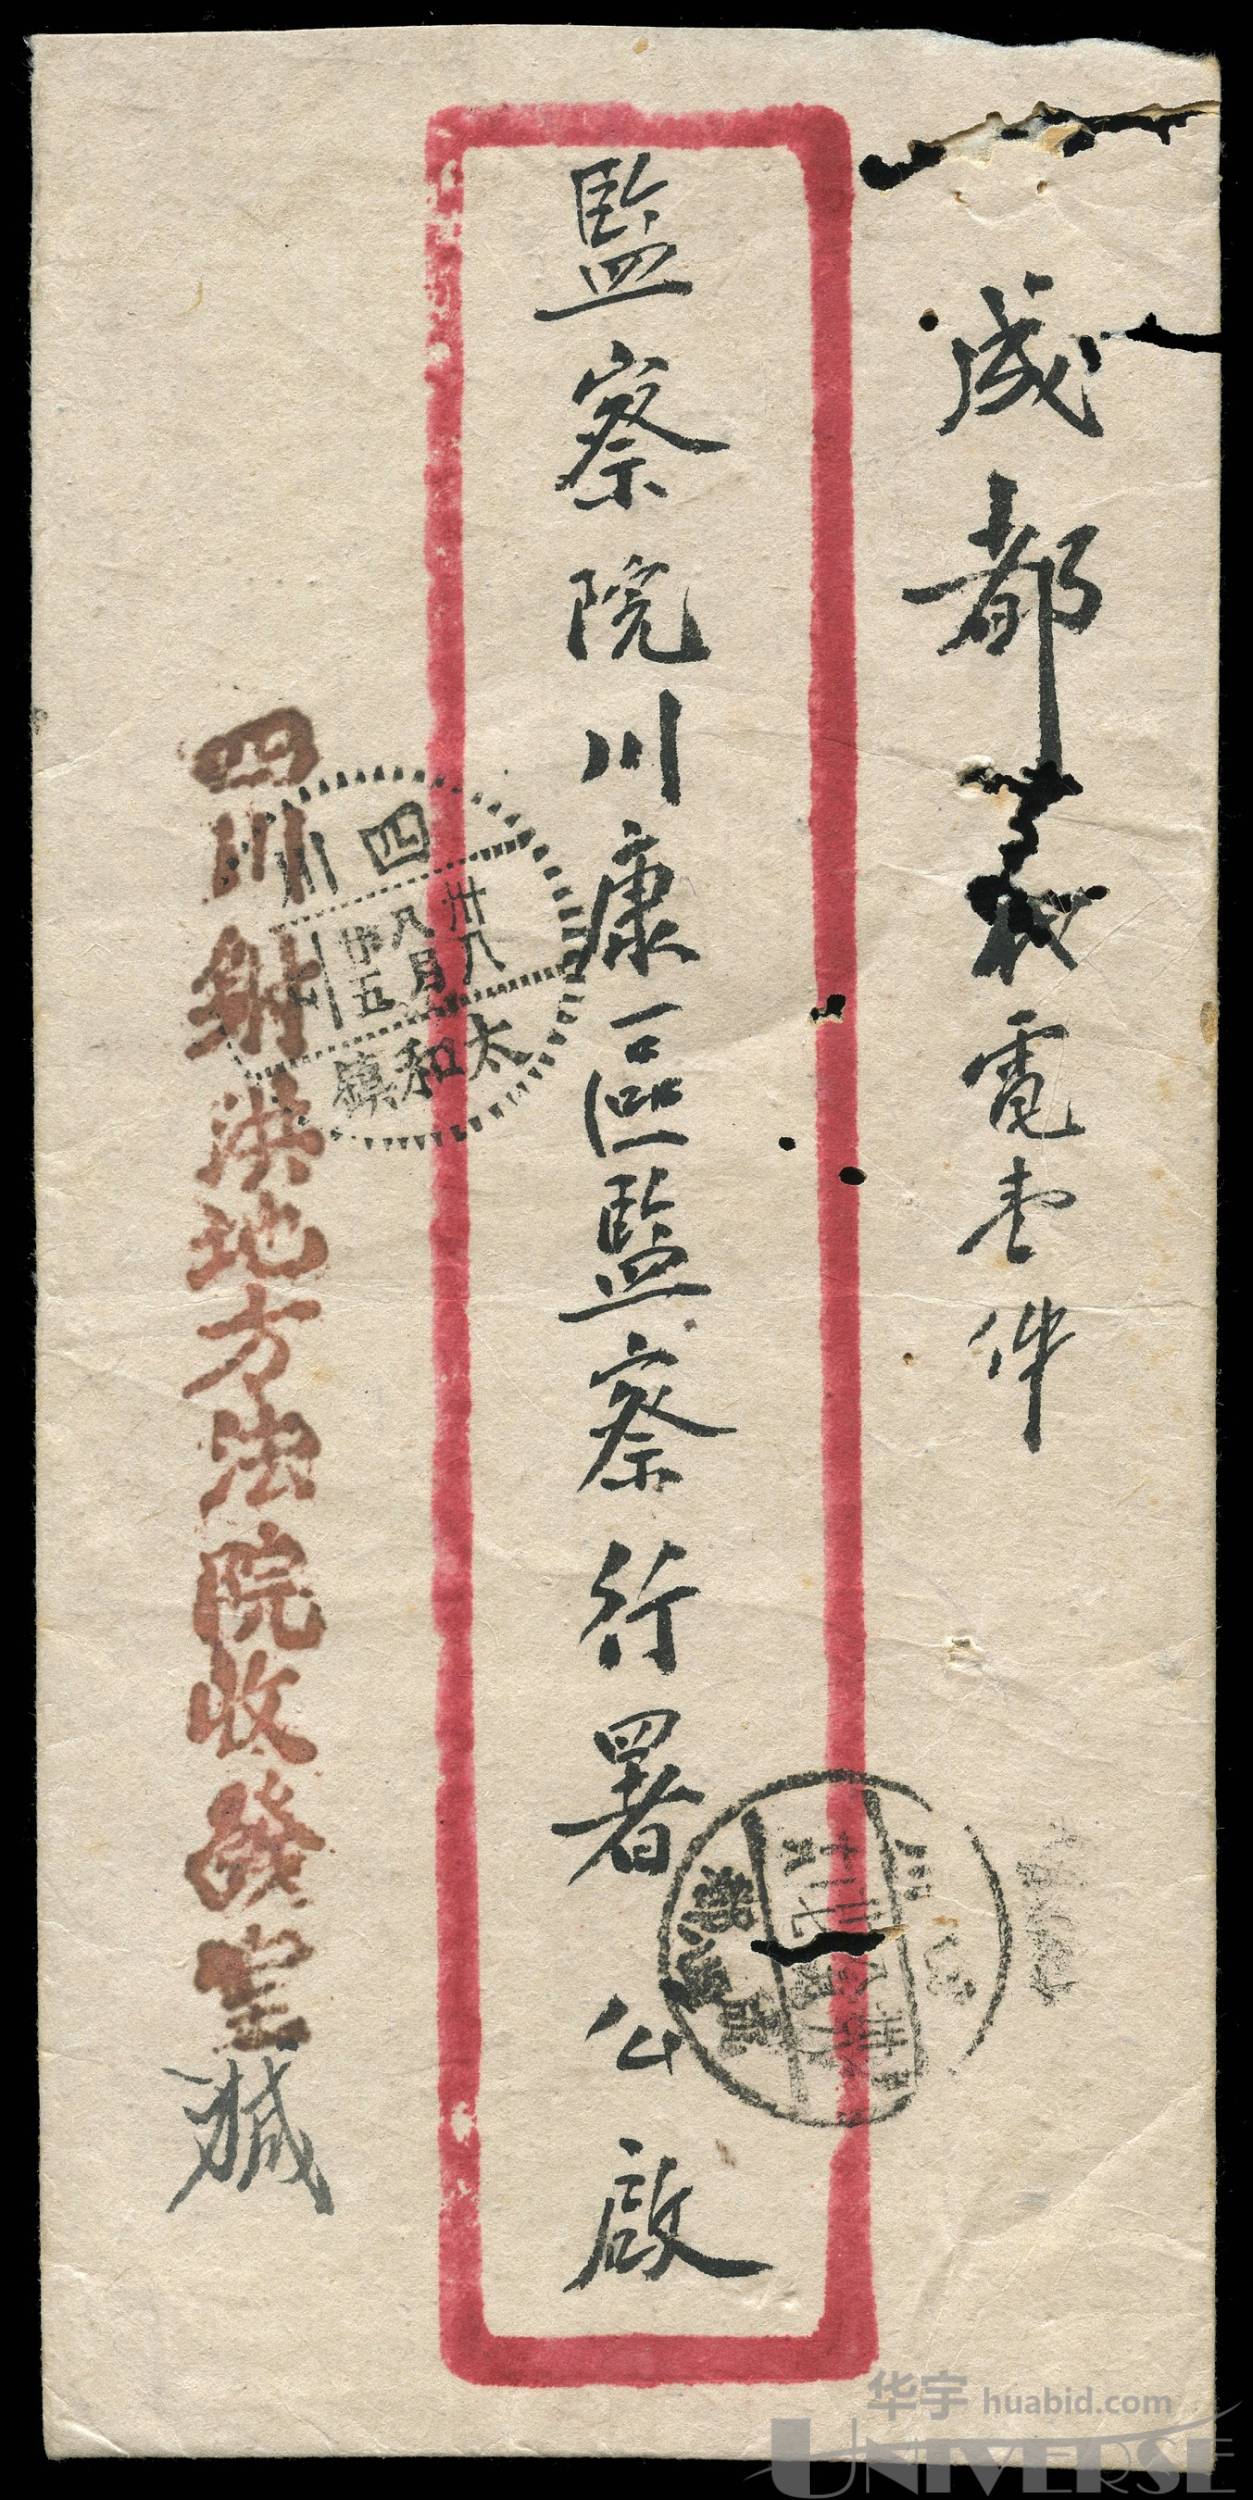 成都 電壹件
監察院川康區監察行署公啟
四川射洪地方法院收發室緘
四川
卅八
八月
廿五
太和鎮
华宇 huabid.com
UNIVERSE